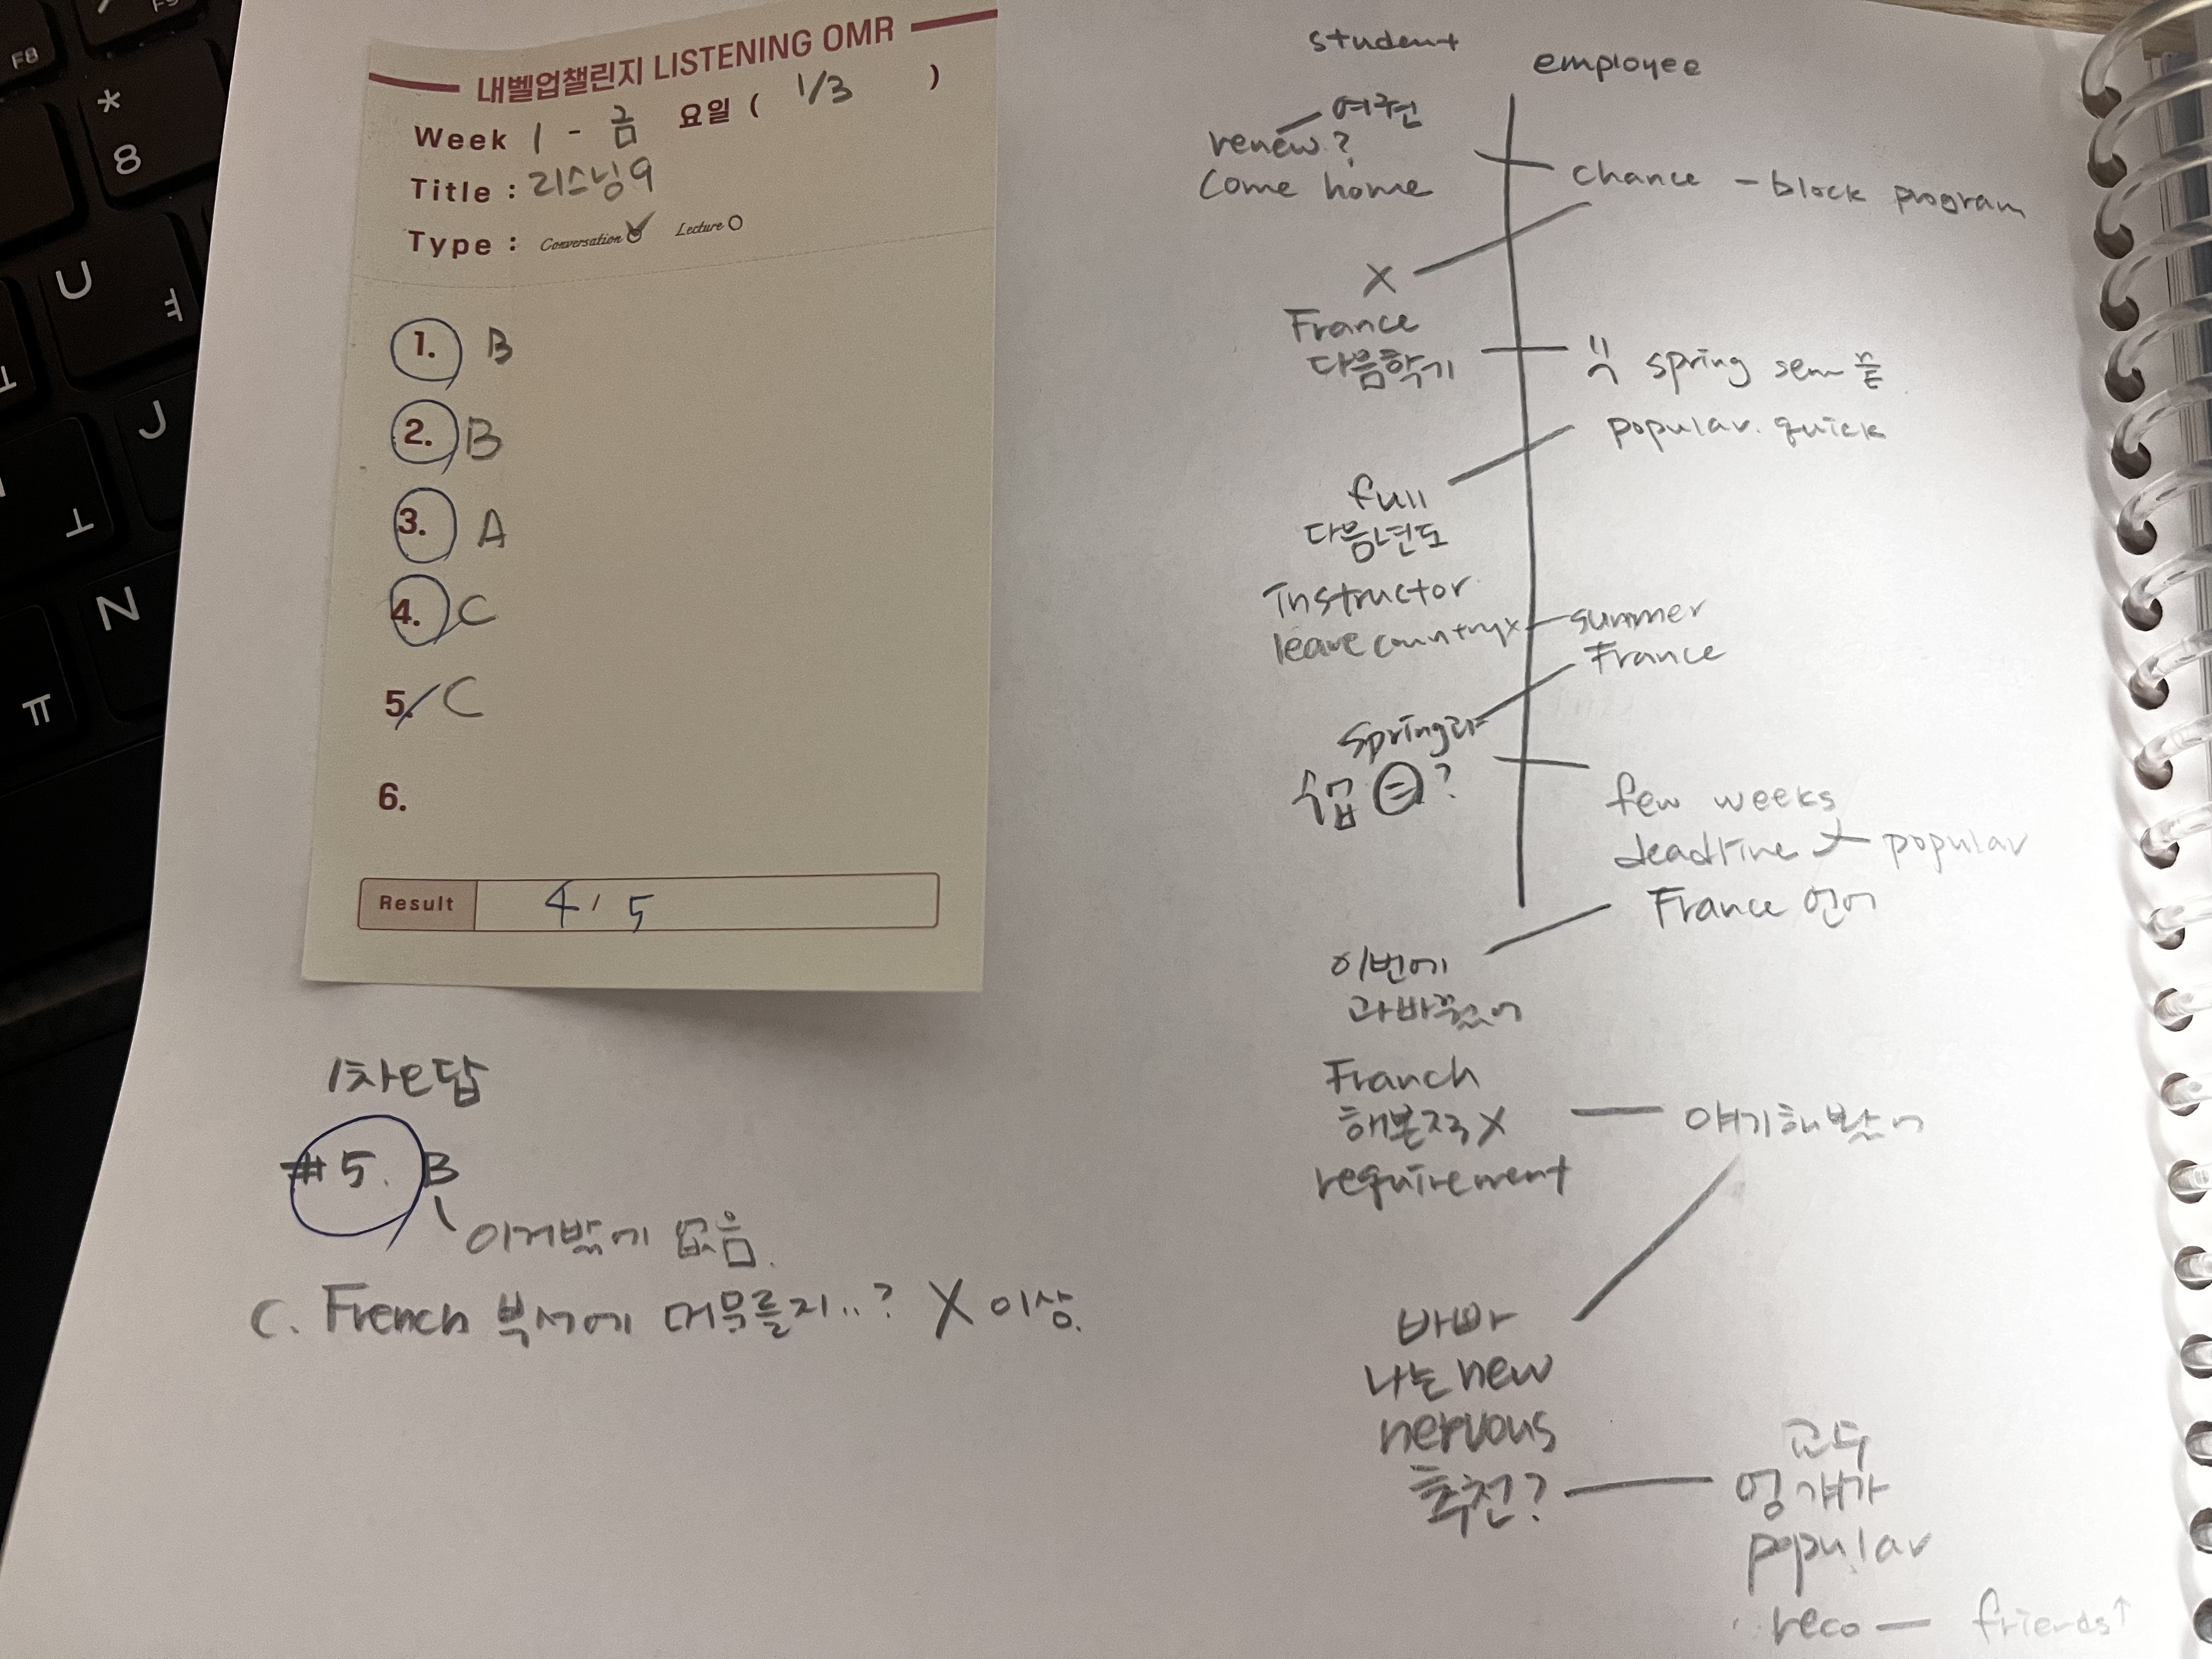 내벨업챌린지 LISTENING OMR
Week 1 - 금 요일 ( 1/3 )
Title : 리스닝9
Type : Conversation Lecture
1. B
2. B
3. A
4. C
5. C
6.
Result 4 / 5
1차오답
#5. B
이거밖에 없음.
C. French 부서에 머무를지..? X 이상.
student
employee
여권
renew?
come home
chance - block program
X
France
다음학기
spring sem 끝
popular. quick
full
다음년도
Instructor
leave country x
summer
France
spring
수업 ?
few weeks
deadline popular
France 언어
이번에
과바꿨어
Franch
해본적X
얘기해봤어
requirement
바빠
나는 new
nervous
추천?
교수
popular
reco - friends↑
F8
*
8
U
ㅕ
J
N
ㅜ
ㅠ